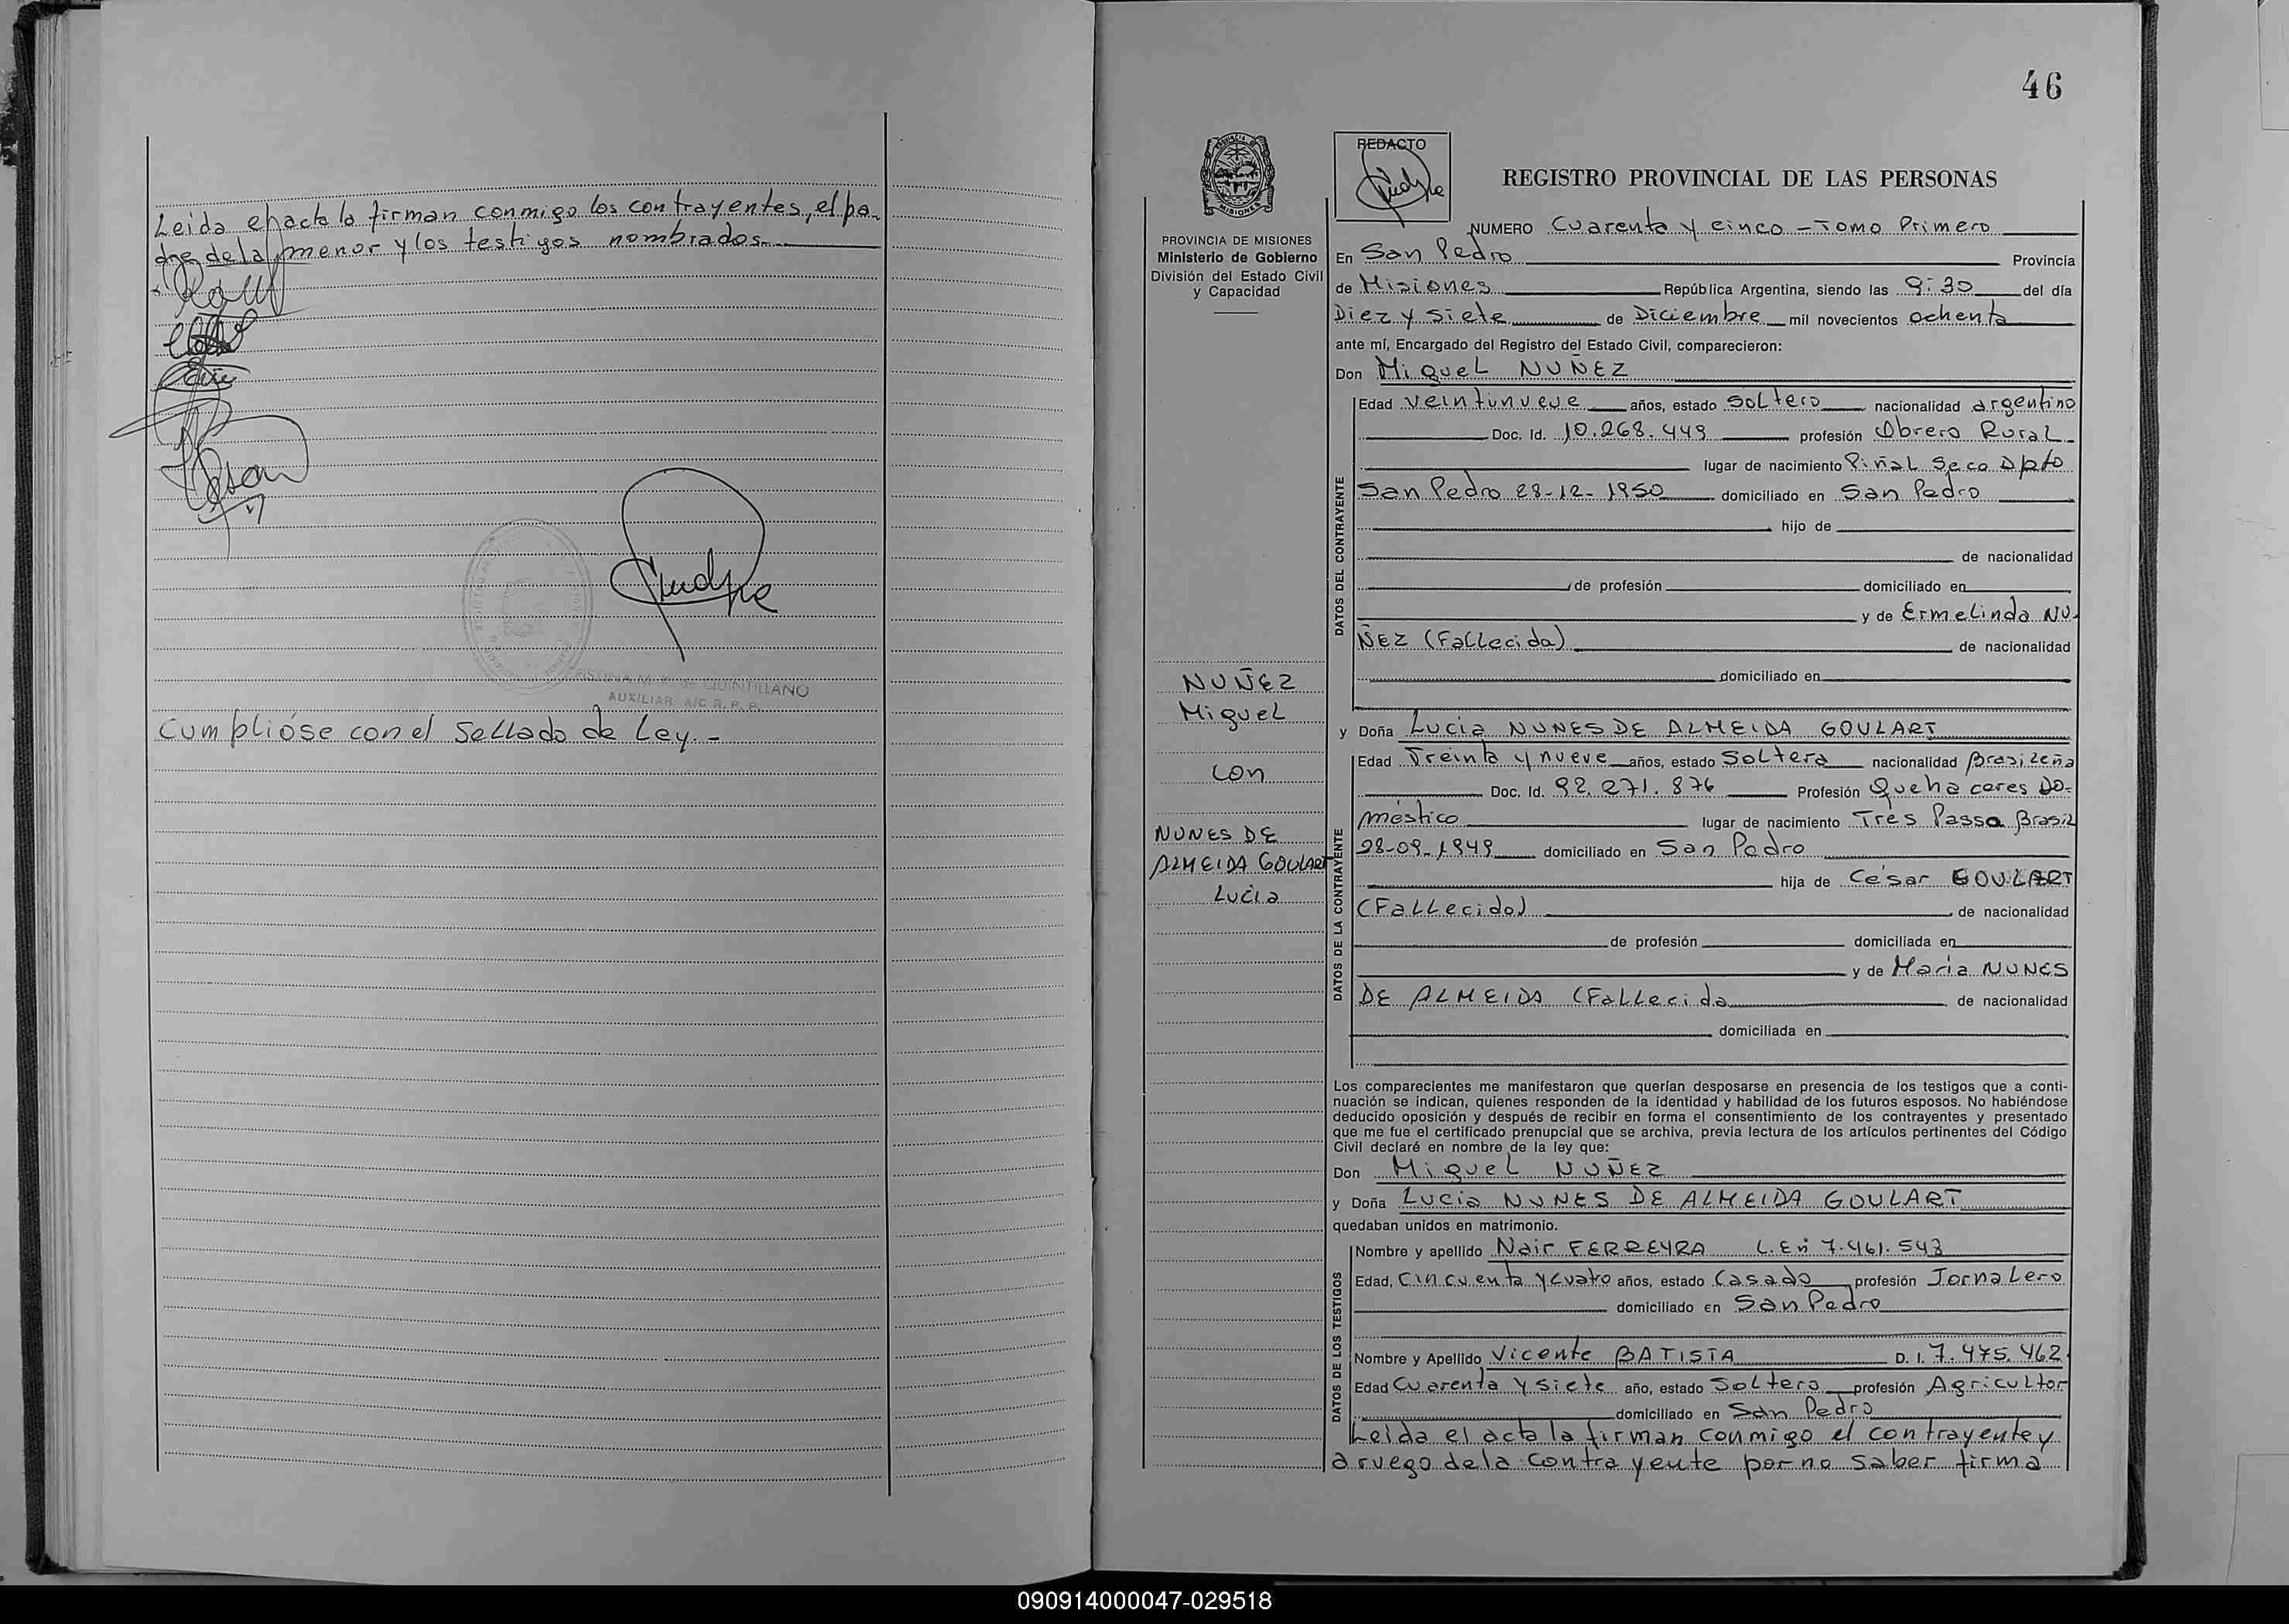 Leida el acta la firman conmigo los contrayentes, el pa-
dre de la menor y los testigos nombrados.
QUINTILLANO
AUXILIAR A/C R. P. P.
Cumplióse con el Sellado de Ley.-
46
REDACTO
REGISTRO PROVINCIAL DE LAS PERSONAS
MISIONES
PROVINCIA DE MISIONES
Ministerio de Gobierno
División del Estado Civil
y Capacidad
NUMERO Cuarenta y cinco - Tomo Primero
En San Pedro Provincia
de Misiones República Argentina, siendo las 9:30 del día
Diez y siete de Diciembre mil novecientos ochenta
ante mí, Encargado del Registro del Estado Civil, comparecieron:
Don Miguel NUÑEZ
DATOS DEL CONTRAYENTE
Edad veintinueve años, estado Soltero nacionalidad argentino
Doc. Id. 10.268.449 profesión Obrero Rural
lugar de nacimiento Piñal Seco Dpto
San Pedro 28-12-1950 domiciliado en San Pedro
hijo de
de nacionalidad
de profesión domiciliado en
y de Ermelinda NU-
ÑEZ (Fallecida) de nacionalidad
domiciliado en
NUÑEZ
Miguel
con
NUNES DE
ALMEIDA GOULART
Lucia
y Doña Lucia NUNES DE ALMEIDA GOULART
DATOS DE LA CONTRAYENTE
Edad Treinta y nueve años, estado Soltera nacionalidad Brasileña
Doc. Id. 92.271.876 Profesión Quehaceres Do-
méstico lugar de nacimiento Tres Passo Brasil
28-09-1949 domiciliado en San Pedro
hija de César GOULART
(Fallecido) de nacionalidad
de profesión domiciliada en
y de Maria NUNES
DE ALMEIDA (Fallecida de nacionalidad
domiciliada en
Los comparecientes me manifestaron que querían desposarse en presencia de los testigos que a conti-
nuación se indican, quienes responden de la identidad y habilidad de los futuros esposos. No habiéndose
deducido oposición y después de recibir en forma el consentimiento de los contrayentes y presentado
que me fue el certificado prenupcial que se archiva, previa lectura de los artículos pertinentes del Código
Civil declaré en nombre de la ley que:
Don Miguel NUÑEZ
y Doña Lucia NUNES DE ALMEIDA GOULART
quedaban unidos en matrimonio.
DATOS DE LOS TESTIGOS
Nombre y apellido Nair FERREYRA L.E nº 7.461.543
Edad, Cincuenta y cuatro años, estado Casado profesión Jornalero
domiciliado en San Pedro
Nombre y Apellido Vicente BATISTA D. I. 7.475.462
Edad Cuarenta y siete año, estado Soltero profesión Agricultor
domiciliado en San Pedro
Leida el acta la firman conmigo el contrayente y
a ruego de la contrayente por no saber firma
090914000047-029518